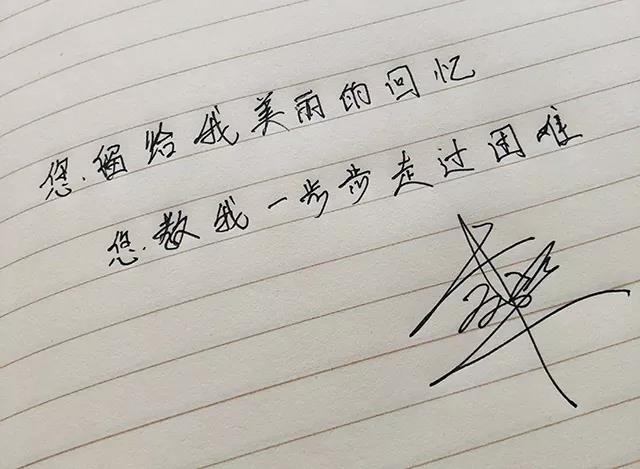 您留给我美丽的回忆
您教我一步步走过困难